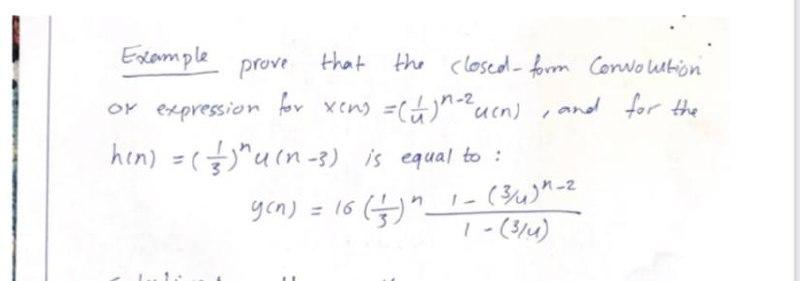 Example prove that the closed-form Convolution
or expression for x(n) = (1/4)^n-2 u(n) , and for the
h(n) = (1/3)^n u(n-3) is equal to :
y(n) = 16 (1/3)^n 1 - (3/4)^n-2 / 1 - (3/4)